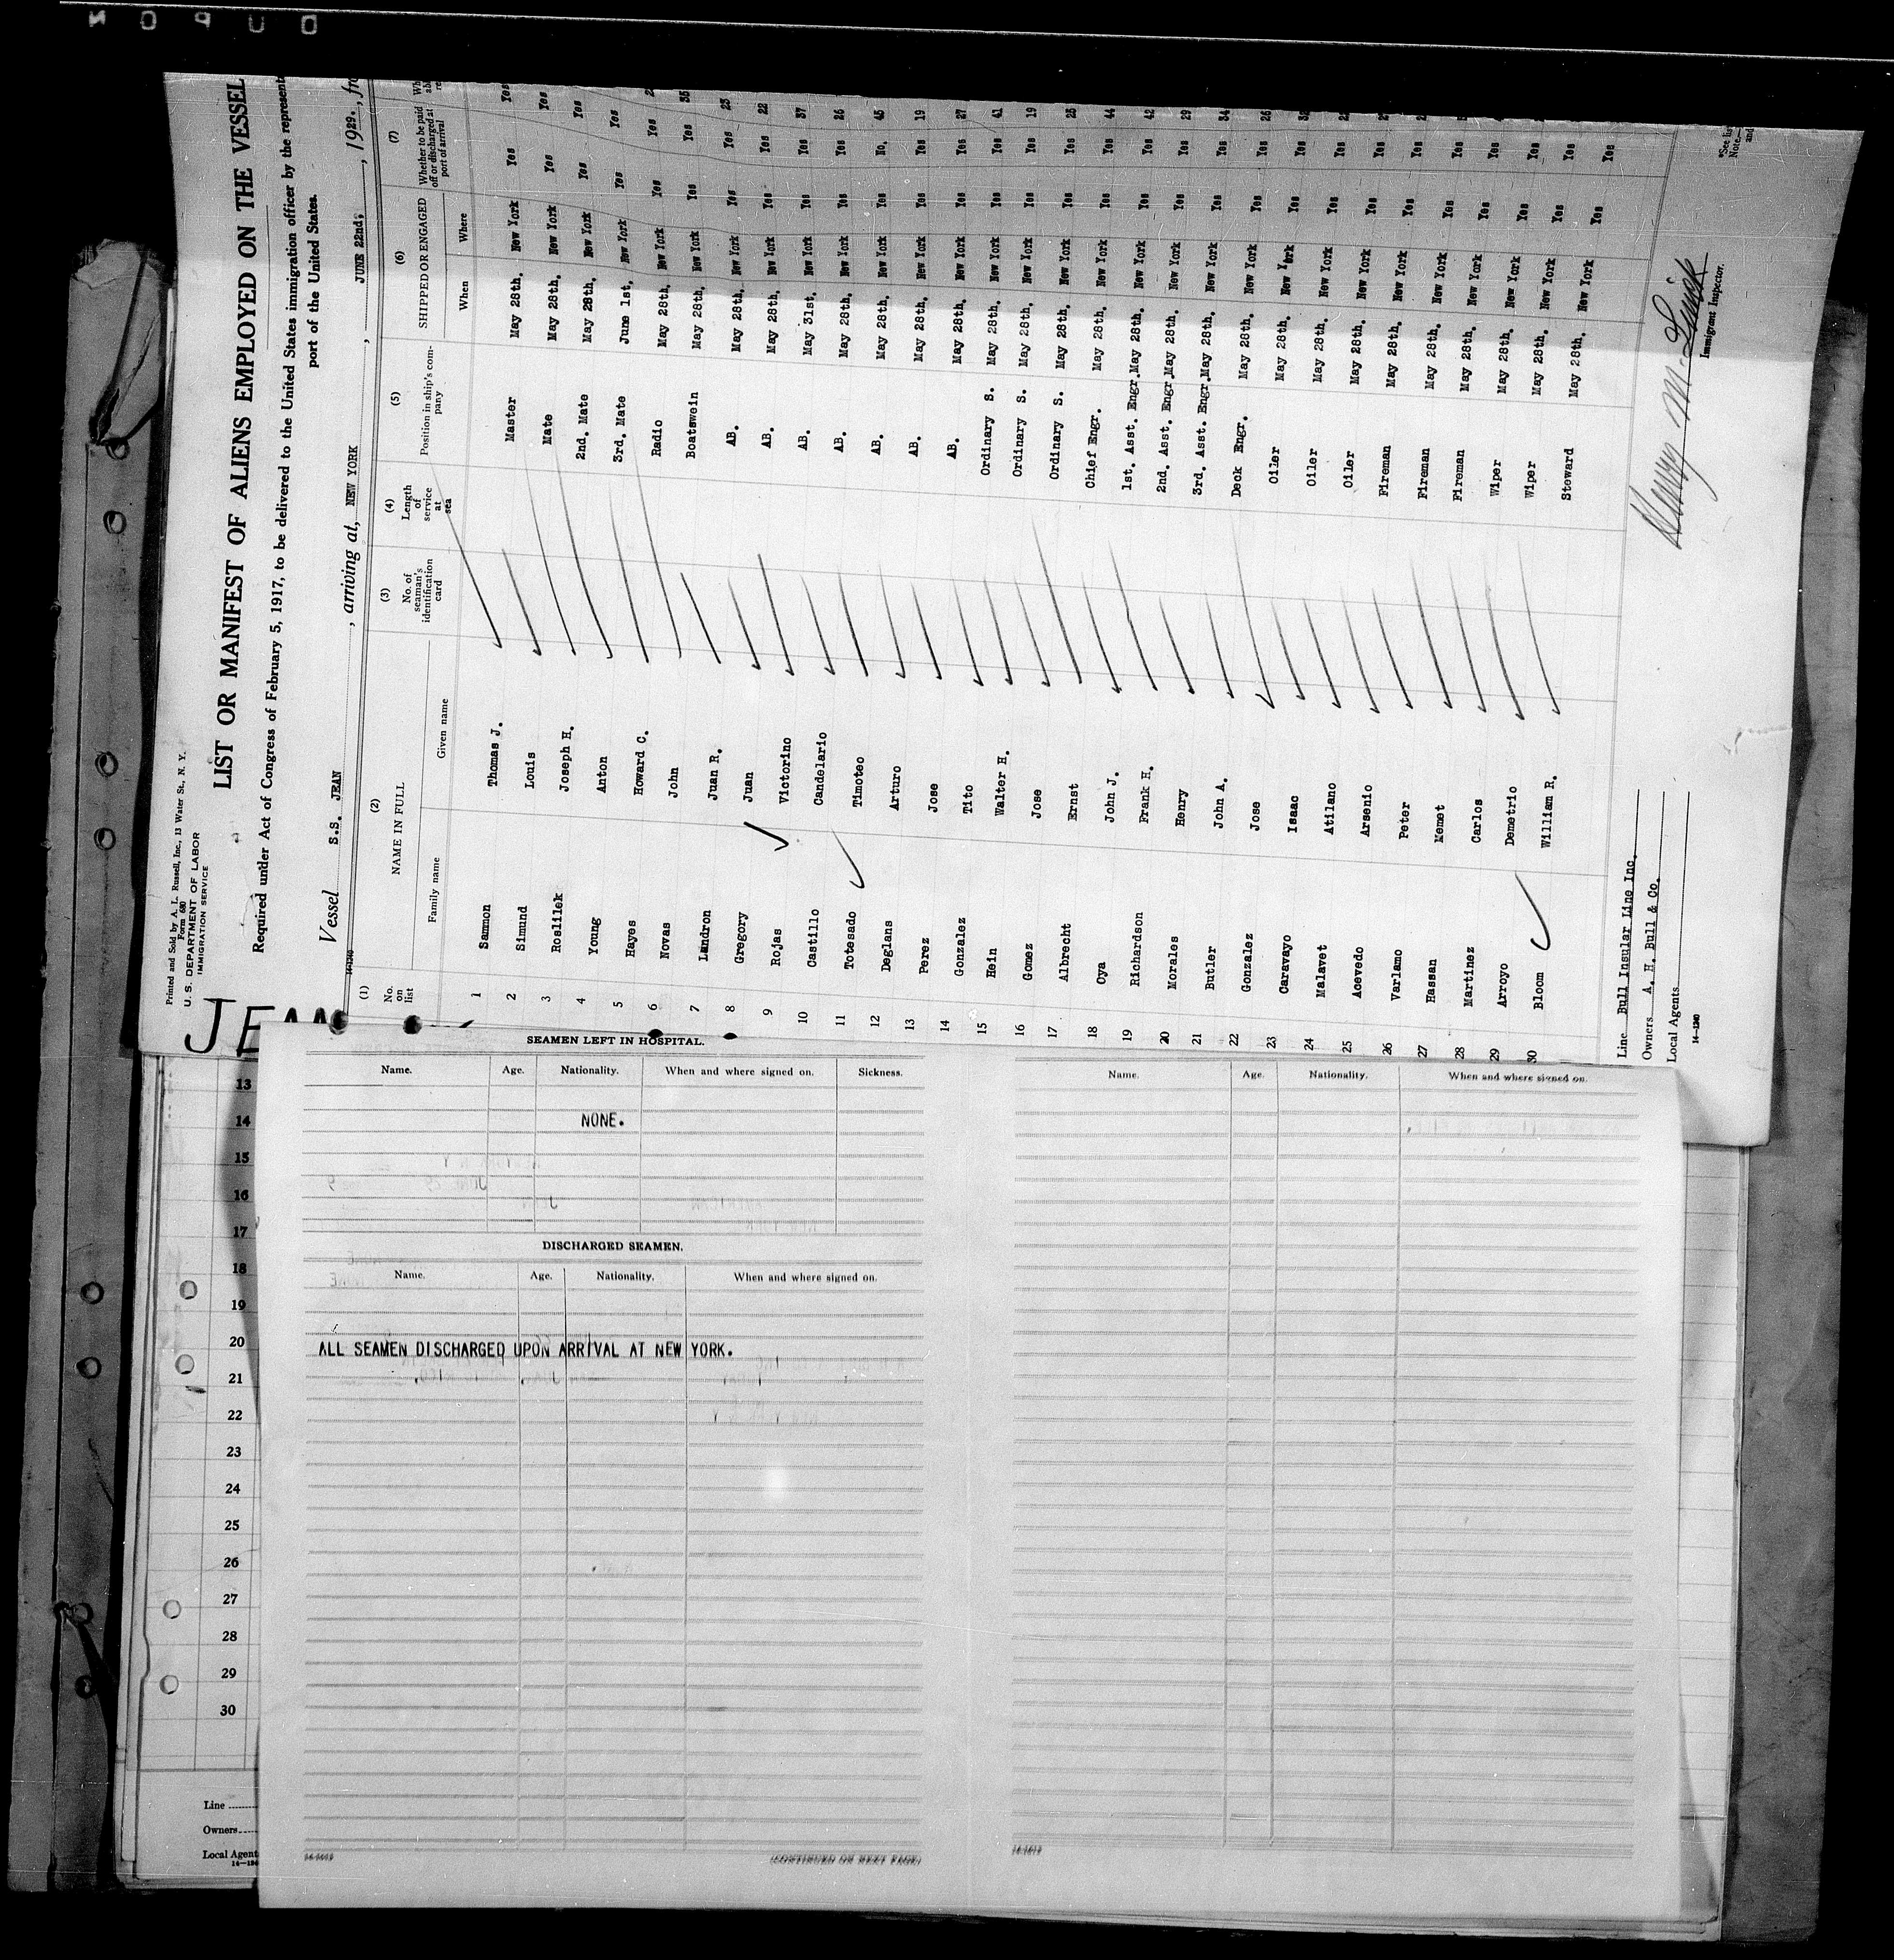 Printed and Sold by A. L. Russell, Inc., 13 Water St., N. Y.
Form 680
U. S. DEPARTMENT OF LABOR
IMMIGRATION SERVICE
JEAN
LIST OR MANIFEST OF ALIENS EMPLOYED ON THE VESSEL
Required under Act of Congress of February 5, 1917, to be delivered to the United States immigration officer by the represent
port of the United States.
Vessel S.S. JEAN, arriving at, NEW YORK, JUNE 22nd, 1929, fro
14-1240
(1) No. on list
(2) NAME IN FULL Family name Given name
(3) No. of seaman's identification card
(4) Length of service at sea
(5) Position in ship's company
(6) SHIPPED OR ENGAGED When Where
(7) Whether to be paid off or discharged at port of arrival
1 Sammon Thomas J. Master May 28th. New York Yes Yes
2 Simund Louis Mate May 28th. New York Yes Yes
3 Roslilek Joseph H. 2nd. Mate May 28th. New York Yes Yes
4 Young Anton 3rd. Mate June 1st. New York Yes Yes
5 Hayes Howard C. Radio May 28th. New York Yes Yes
6 Novas John Boatswein May 28th. New York Yes Yes 35
7 Landron Juan R. AB. May 28th. New York Yes Yes 23
8 Gregory Juan AB. May 28th. New York Yes Yes 22
9 Rojas Victorino AB. May 31st. New York Yes Yes 37
10 Castillo Candelario AB. May 28th. New York Yes Yes 26
11 Totesado Timoteo AB. May 28th. New York Yes No. 45
12 Deglans Arturo AB. May 28th. New York Yes Yes 19
13 Perez Jose AB. May 28th. New York Yes Yes 27
14 Gonzalez Tito Ordinary S. May 28th. New York Yes Yes 41
15 Hein Walter H. Ordinary S. May 28th. New York Yes Yes 19
16 Gomez Jose Ordinary S. May 28th. New York Yes Yes 25
17 Albrecht Ernst Chief Engr. May 28th. New York Yes Yes 44
18 Oya John J. 1st. Asst. Engr. May 28th. New York Yes Yes 42
19 Richardson Frank H. 2nd. Asst. Engr. May 28th. New York Yes Yes 29
20 Morales Henry 3rd. Asst. Engr. May 28th. New York Yes Yes 34
21 Butler John A. Deck Engr. May 28th. New York Yes Yes 26
22 Gonzalez Jose Oiler May 28th. New York Yes Yes
23 Caravayo Isaac Oiler May 28th. New York Yes Yes
24 Malavet Atilano Oiler May 28th. New York Yes Yes
25 Acevedo Arsenio Fireman May 28th. New York Yes Yes
26 Varlamo Peter Fireman May 28th. New York Yes Yes
27 Hassan Memet Fireman May 28th. New York Yes Yes
28 Martinez Carlos Wiper May 28th. New York Yes Yes
29 Arroyo Demetrio Wiper May 28th. New York Yes Yes
30 Bloom William R. Steward May 28th. New York Yes Yes
Line Bull Insular Line Inc.
Owners A. H. Bull & Co.
Local Agents
14-1240
Immigrant Inspector.
SEAMEN LEFT IN HOSPITAL.
Name. Age. Nationality. When and where signed on. Sickness.
NONE.
DISCHARGED SEAMEN.
Name. Age. Nationality. When and where signed on.
ALL SEAMEN DISCHARGED UPON ARRIVAL AT NEW YORK.
(CONTINUED ON NEXT PAGE)
Name. Age. Nationality. When and where signed on.
13
14
15
16
17
18
19
20
21
22
23
24
25
26
27
28
29
30
Line
Owners
Local Agent